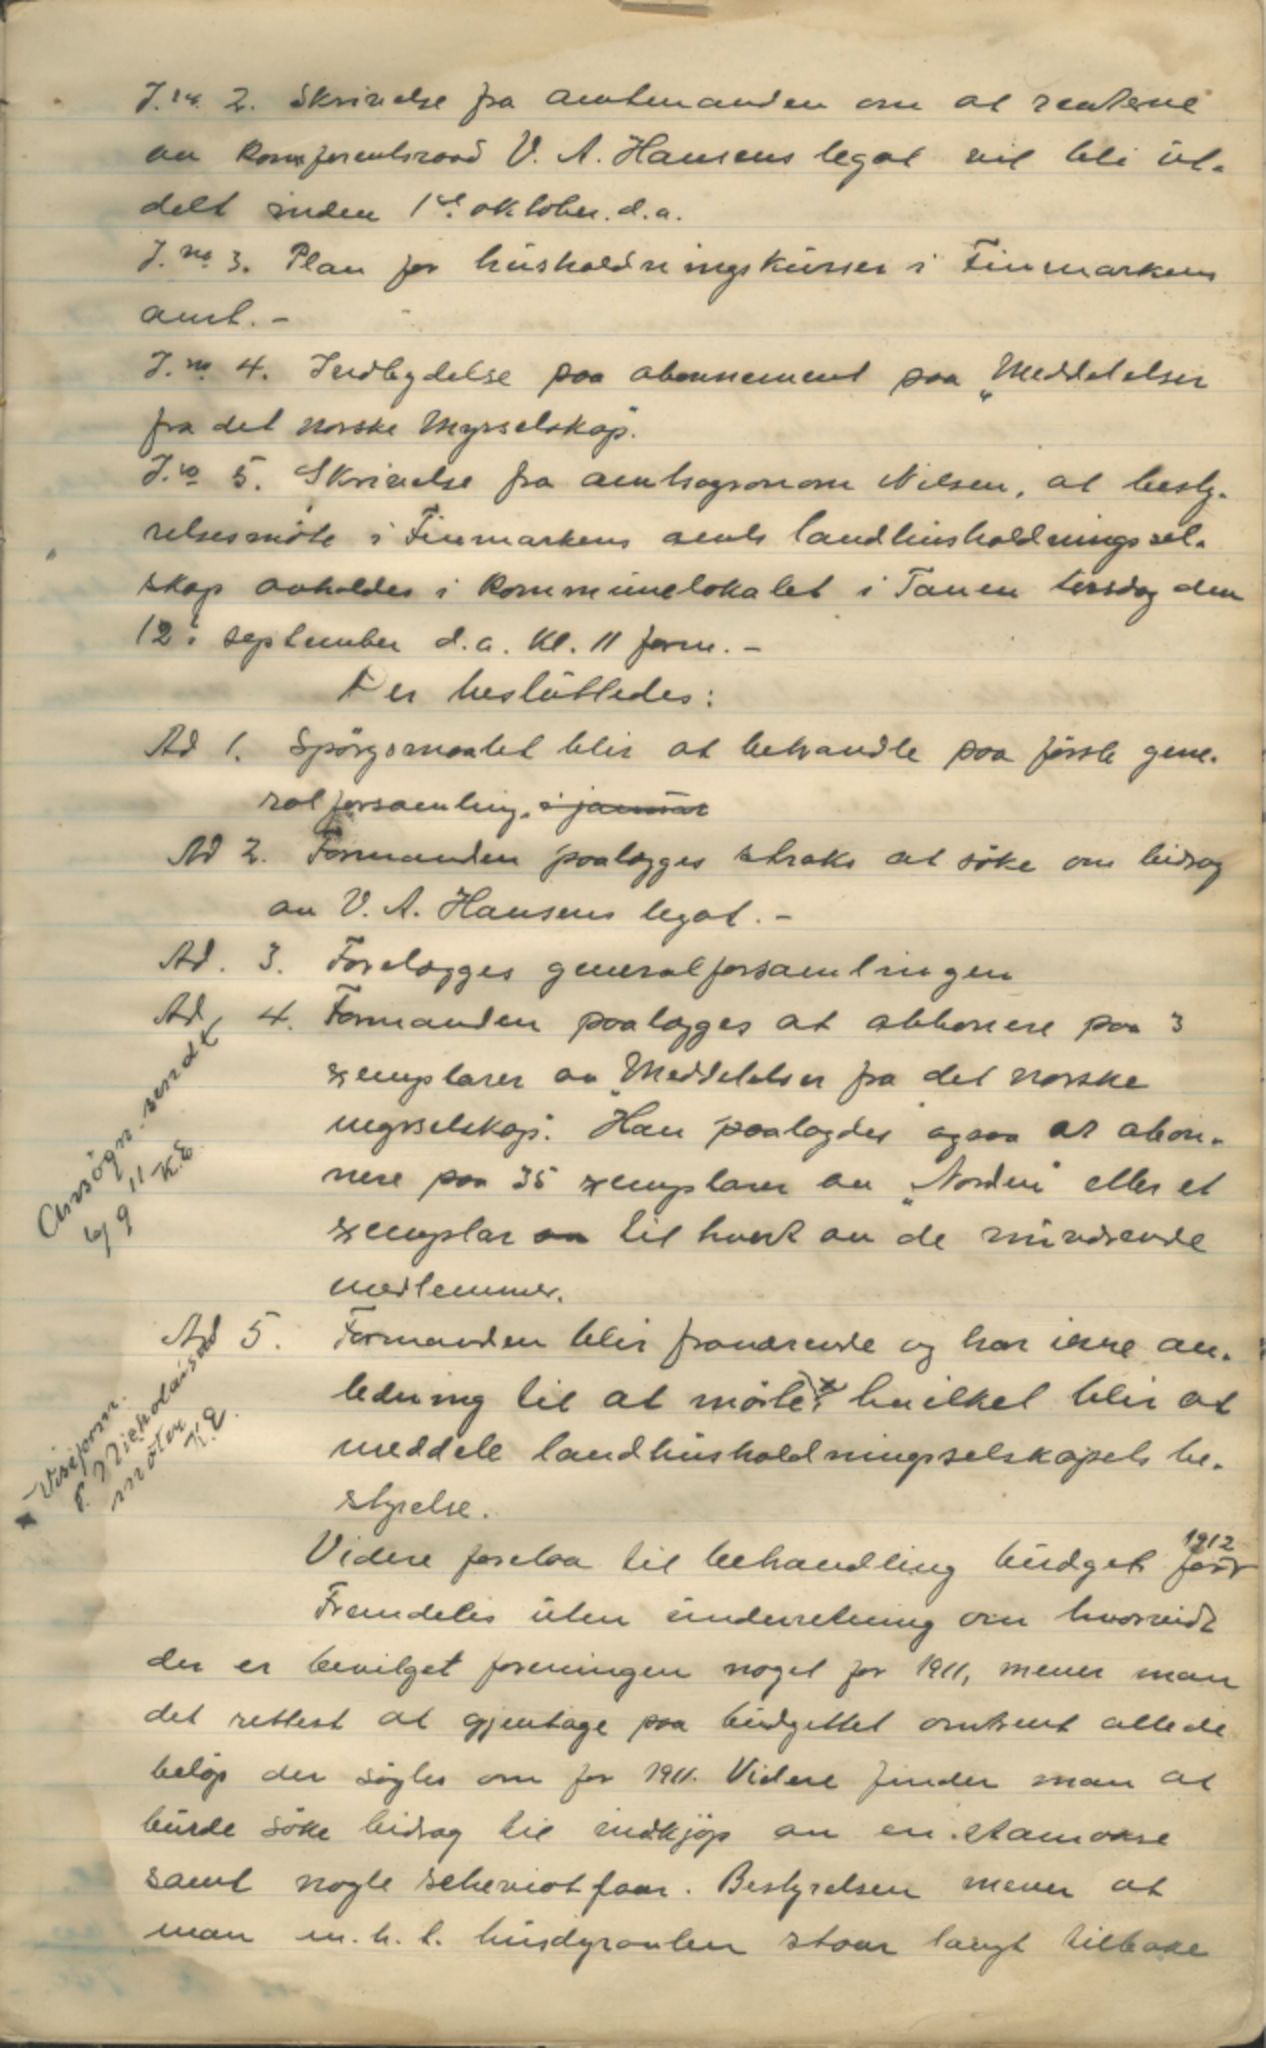 J. no. 2. Skrivelse fra amtmanden om at renterne
av konferentsraad V. A. Hansens legat vil bli ut-
delt inden 1ste oktober. d.a.
J. no 3. Plan for husholdningskurser i Finmarkens
amt. -
J. no 4. Indbydelse paa abonnement paa „Meddelelser
fra det norske Myrselskap".
J. no 5. Skrivelse fra amtsagronom Nilsen, at besty-
relsesmöte i Finmarkens amts landhusholdningssel-
skap avholdes i kommunelokalet i Tanen tirsdag den
12te september d.a. kl. 11 form. -
Der besluttedes:
Ad 1. Spörgsmaalet blir at behandle paa förste gene-
ralforsamling. i januar
Ad 2. Formanden paalægges straks at söke om bidrag
av V. A. Hansens legat. -
Ad. 3. Forelægges generalforsamlingen
Ad. 4. Formanden paalægges at abbonere paa 3
exemplarer av „Meddelelser fra det norske
myrselskap". Han paalagdes ogsaa at abon-
nere paa 35 exemplarer av „Norden" eller et
exemplar av til hvert av de nuværende
medlemmer.
Ansögn. sendt
6/9 11 K.E.
Ad 5. Formanden blir fraværende og har ikke an-
ledning til at möte, * hvilket blir at
meddele landhusholdningsselskapets be-
styrelse.
* Viseform.
P. Nicholaisen
möter
K.E.
Videre forelaa til behandling budget for 1912
Fremdeles uten underretning om hvorvidt
der er bevilget foreningen noget for 1911, mener man
det rettest at gjentage paa budgettet omtrent alle de
belöp der sögtes om for 1911. Videre finder man at
burde söke bidrag til indkjöp av en stamokse
samt nogle scheviotfaar. Bestyrelsen mener at
man m.h.t. husdyravlen staar langt tilbake